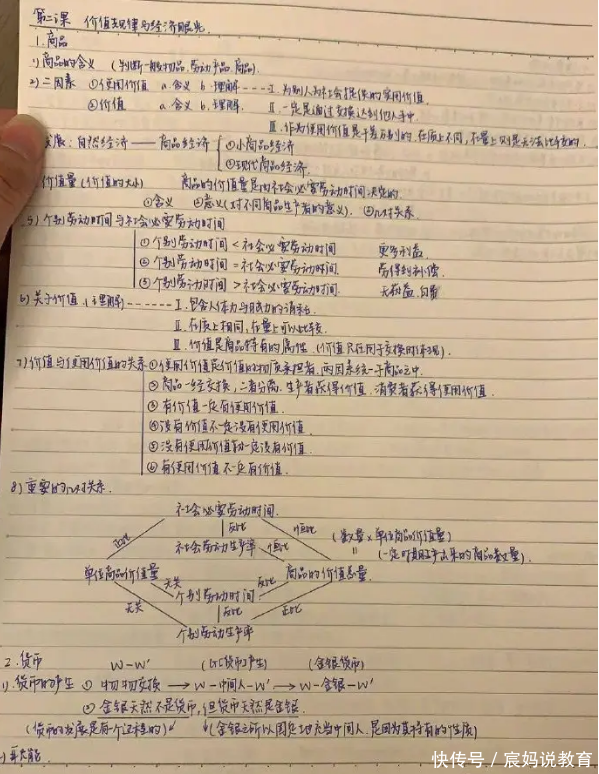 第二课 价值规律与经济眼光
1.商品
1)商品的含义 (判断一般物品.劳动产品.商品)
2)二因素 ①使用价值 a.含义 b.理解----Ⅰ.为别人为社会提供的实用价值.
②价值 a.含义 b.理解. Ⅱ.一定是通过交换达到他人手中
Ⅲ.作为使用价值是千差万别的.在质上不同,在量上则是无法比较的.
发展:自然经济——商品经济 ①小商品经济
②现代商品经济.
价值量(价值的大小) 商品的价值量是由社会必要劳动时间决定的.
①含义 ②意义(对不同商品生产者的意义). ③几对关系.
5)个别劳动时间与社会必要劳动时间
①个别劳动时间<社会必要劳动时间 更多利益.
②个别劳动时间=社会必要劳动时间. 劳得到补偿.
③个别劳动时间>社会必要劳动时间. 无利益.
6)关于价值.(理解)------Ⅰ.包含人体力与脑力的消耗.
Ⅱ.在质上相同,在量上可以比较.
Ⅲ.价值是商品特有的属性 (价值只在用于交换时体现).
7)价值与使用价值的关系①使用价值是价值的物质承担者.两因素统一于商品之中.
②商品一经交换,二者分离.生产者获得价值.消费者获得使用价值.
③有价值一定有使用价值.
④没有价值不一定没有使用价值.
⑤没有使用价值就一定没有价值.
⑥有使用价值不一定有价值.
8)重要的几对关系.
社会必要劳动时间.
正比 反比 恒比 (数量×单位商品价值量)
社会劳动生产率 恒比 (一定时期生产出来的商品数量)
单位商品价值量 商品的价值总量.
无关 个别劳动时间 反比
无关 反比 正比
个别劳动生产率
2.货币 W—W′ (货币产生) (金银货币)
1).货币的产生 ① 物物交换 → W—中间人—W′ → W—金银—W′
② 金银天然不是货币,但货币天然是金银.
(货币的发展是有个过程的) (金银之所以固定地充当中间人.是因为其特有的性质)
快传号／宸妈说教育